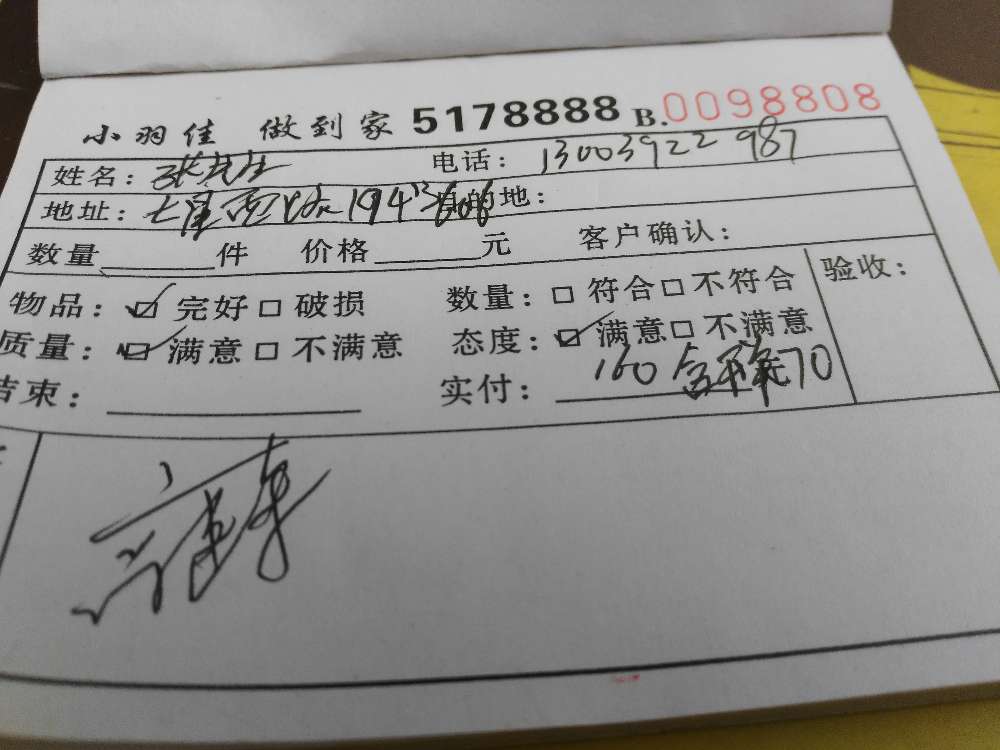 小羽佳 做到家 5178888 B.0098808
姓名：张先生 电话：13003922987
地址：七星西路194 606 目的地：
数量______件 价格______元 客户确认：
物品：☑完好□破损 数量：□符合□不符合 验收：
质量：☑满意□不满意 态度：☑满意□不满意
结束：______ 实付：160 含 70